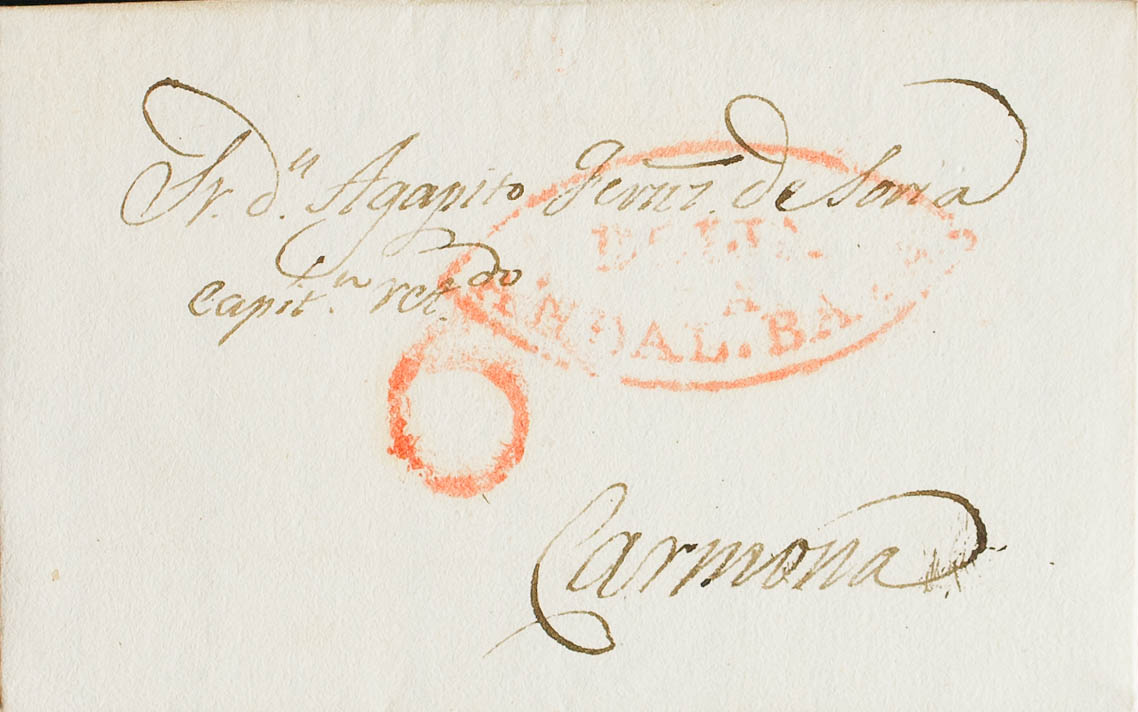 Sr. dn. Agapito Fernz. de Soria
Capitn. retdo.
ANDAL. BAXA
6
Carmona